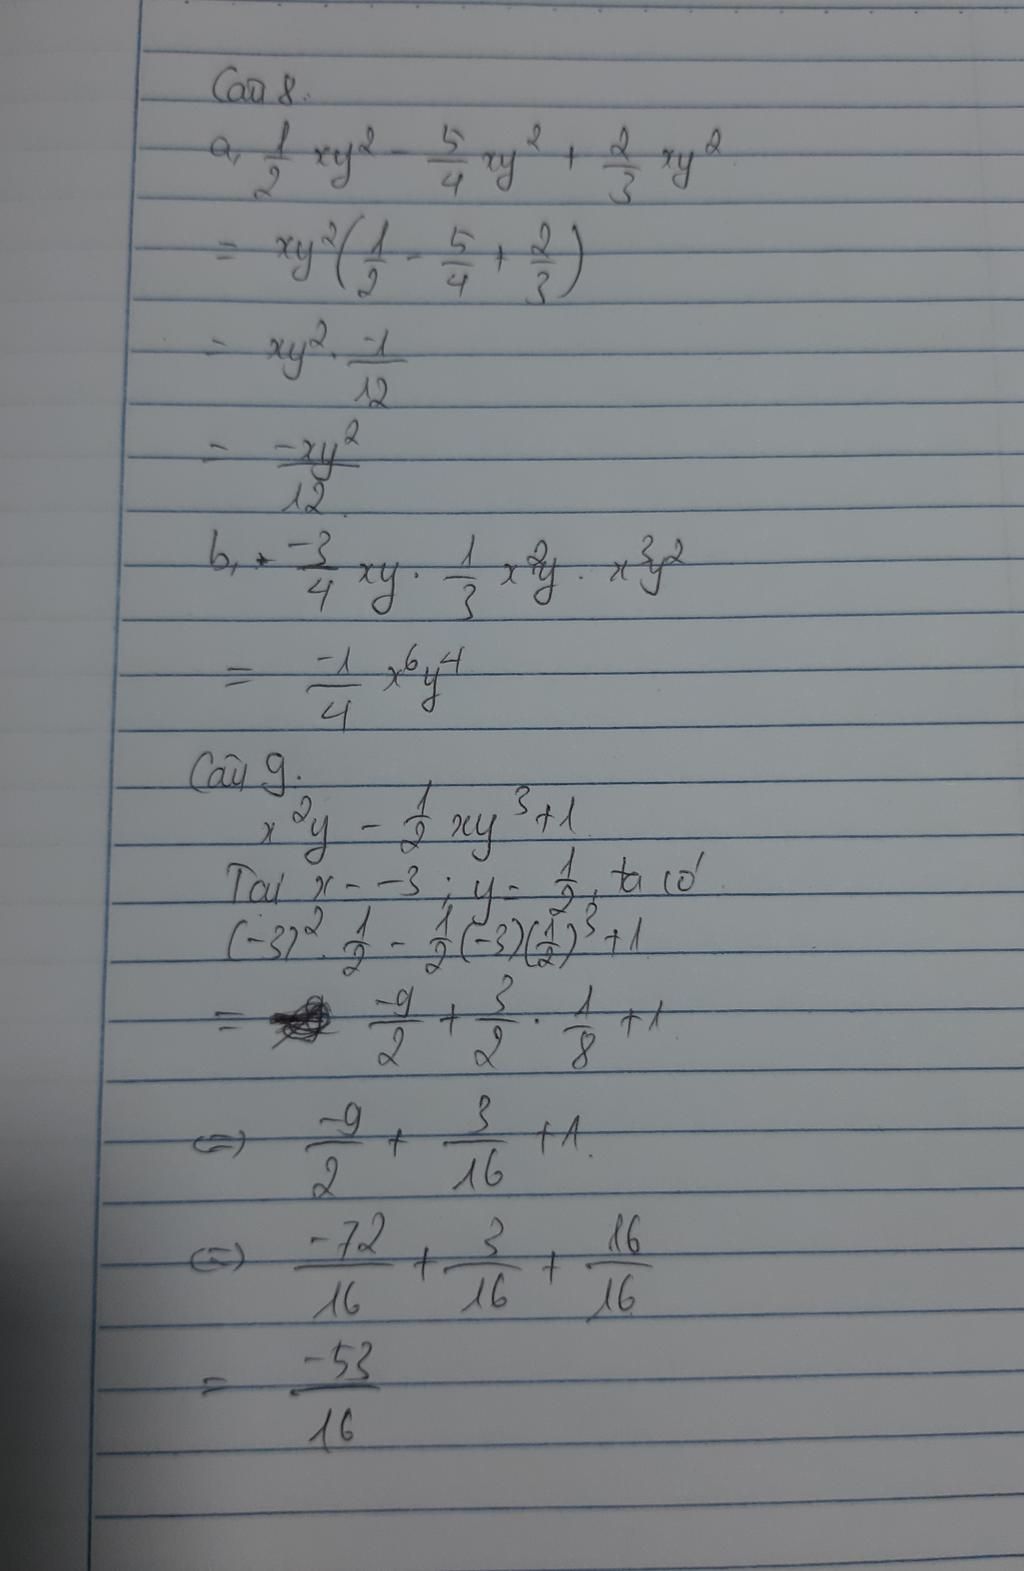 Câu 8.
a, 1/2 xy² - 5/4 xy² + 2/3 xy²
= xy² (1/2 - 5/4 + 2/3)
= xy² . -1/12
= -xy²/12
b, -3/4 xy . 1/3 x²y . x³y²
= -1/4 x⁶y⁴
Câu 9.
x²y - 1/2 xy³ + 1
Tại x = -3 ; y = 1/2, ta có
(-3)² . 1/2 - 1/2 (-3) (1/2)³ + 1
= -9/2 + 3/2 . 1/8 + 1
(=) -9/2 + 3/16 + 1.
(=) -72/16 + 3/16 + 16/16
= -53/16